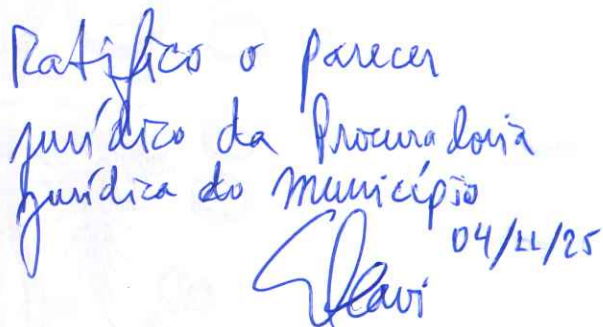 Ratifico o parecer
jurídico da Procuradoria
jurídica do Município
04/11/25